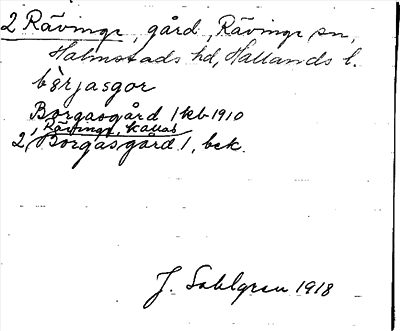 2 Rävinge, gård, Rävinge sn,
Halmstads hd, Hallands l.
bèrjasgor
Borgasgård 1 kb 1910
Rävinge, kallas
2, Borgasgård 1, bek.
J. Sahlgren 1918